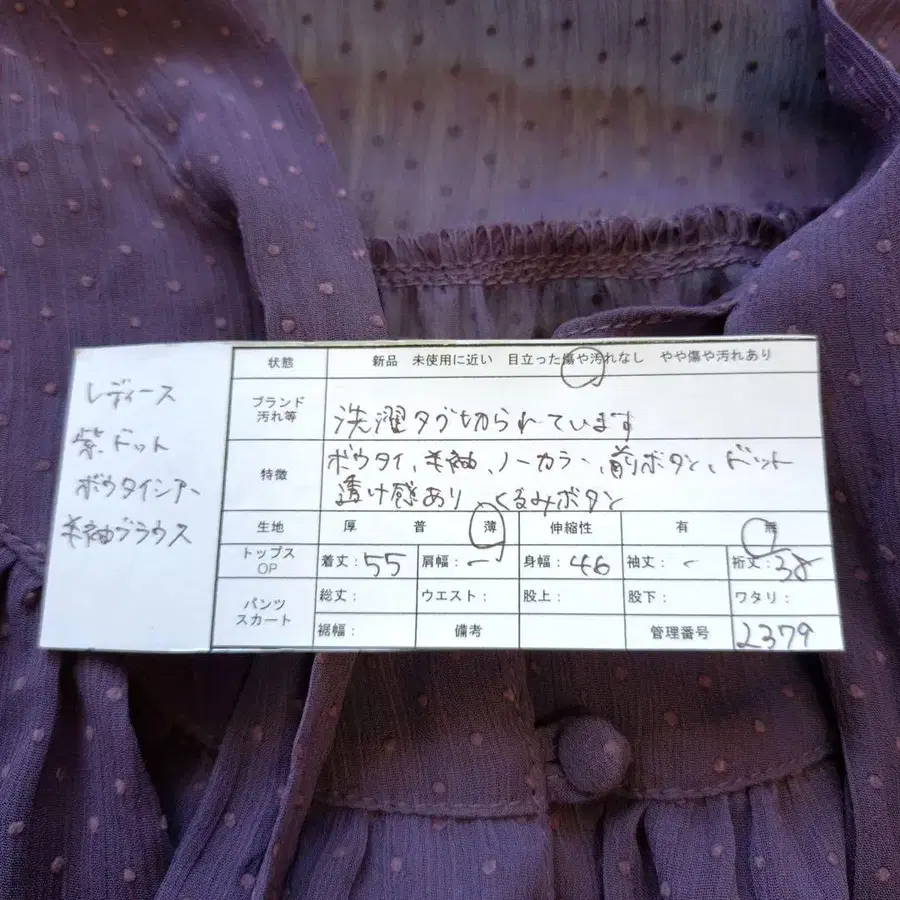 レディース
紫、ドット
ボウタイシアー
半袖ブラウス
状態 新品 未使用に近い 目立った傷や汚れなし やや傷や汚れあり
ブランド
汚れ等
洗濯タグ切られています
特徴
ボウタイ、半袖、ノーカラー、前ボタン、ドット
透け感あり くるみボタン
生地 厚 普 薄 伸縮性 有 無
トップス
OP
着丈:55 肩幅:ー 身幅:46 袖丈:- 裄丈:38
パンツ
スカート
総丈: ウエスト: 股上: 股下: ワタリ:
裾幅: 備考 管理番号 2379